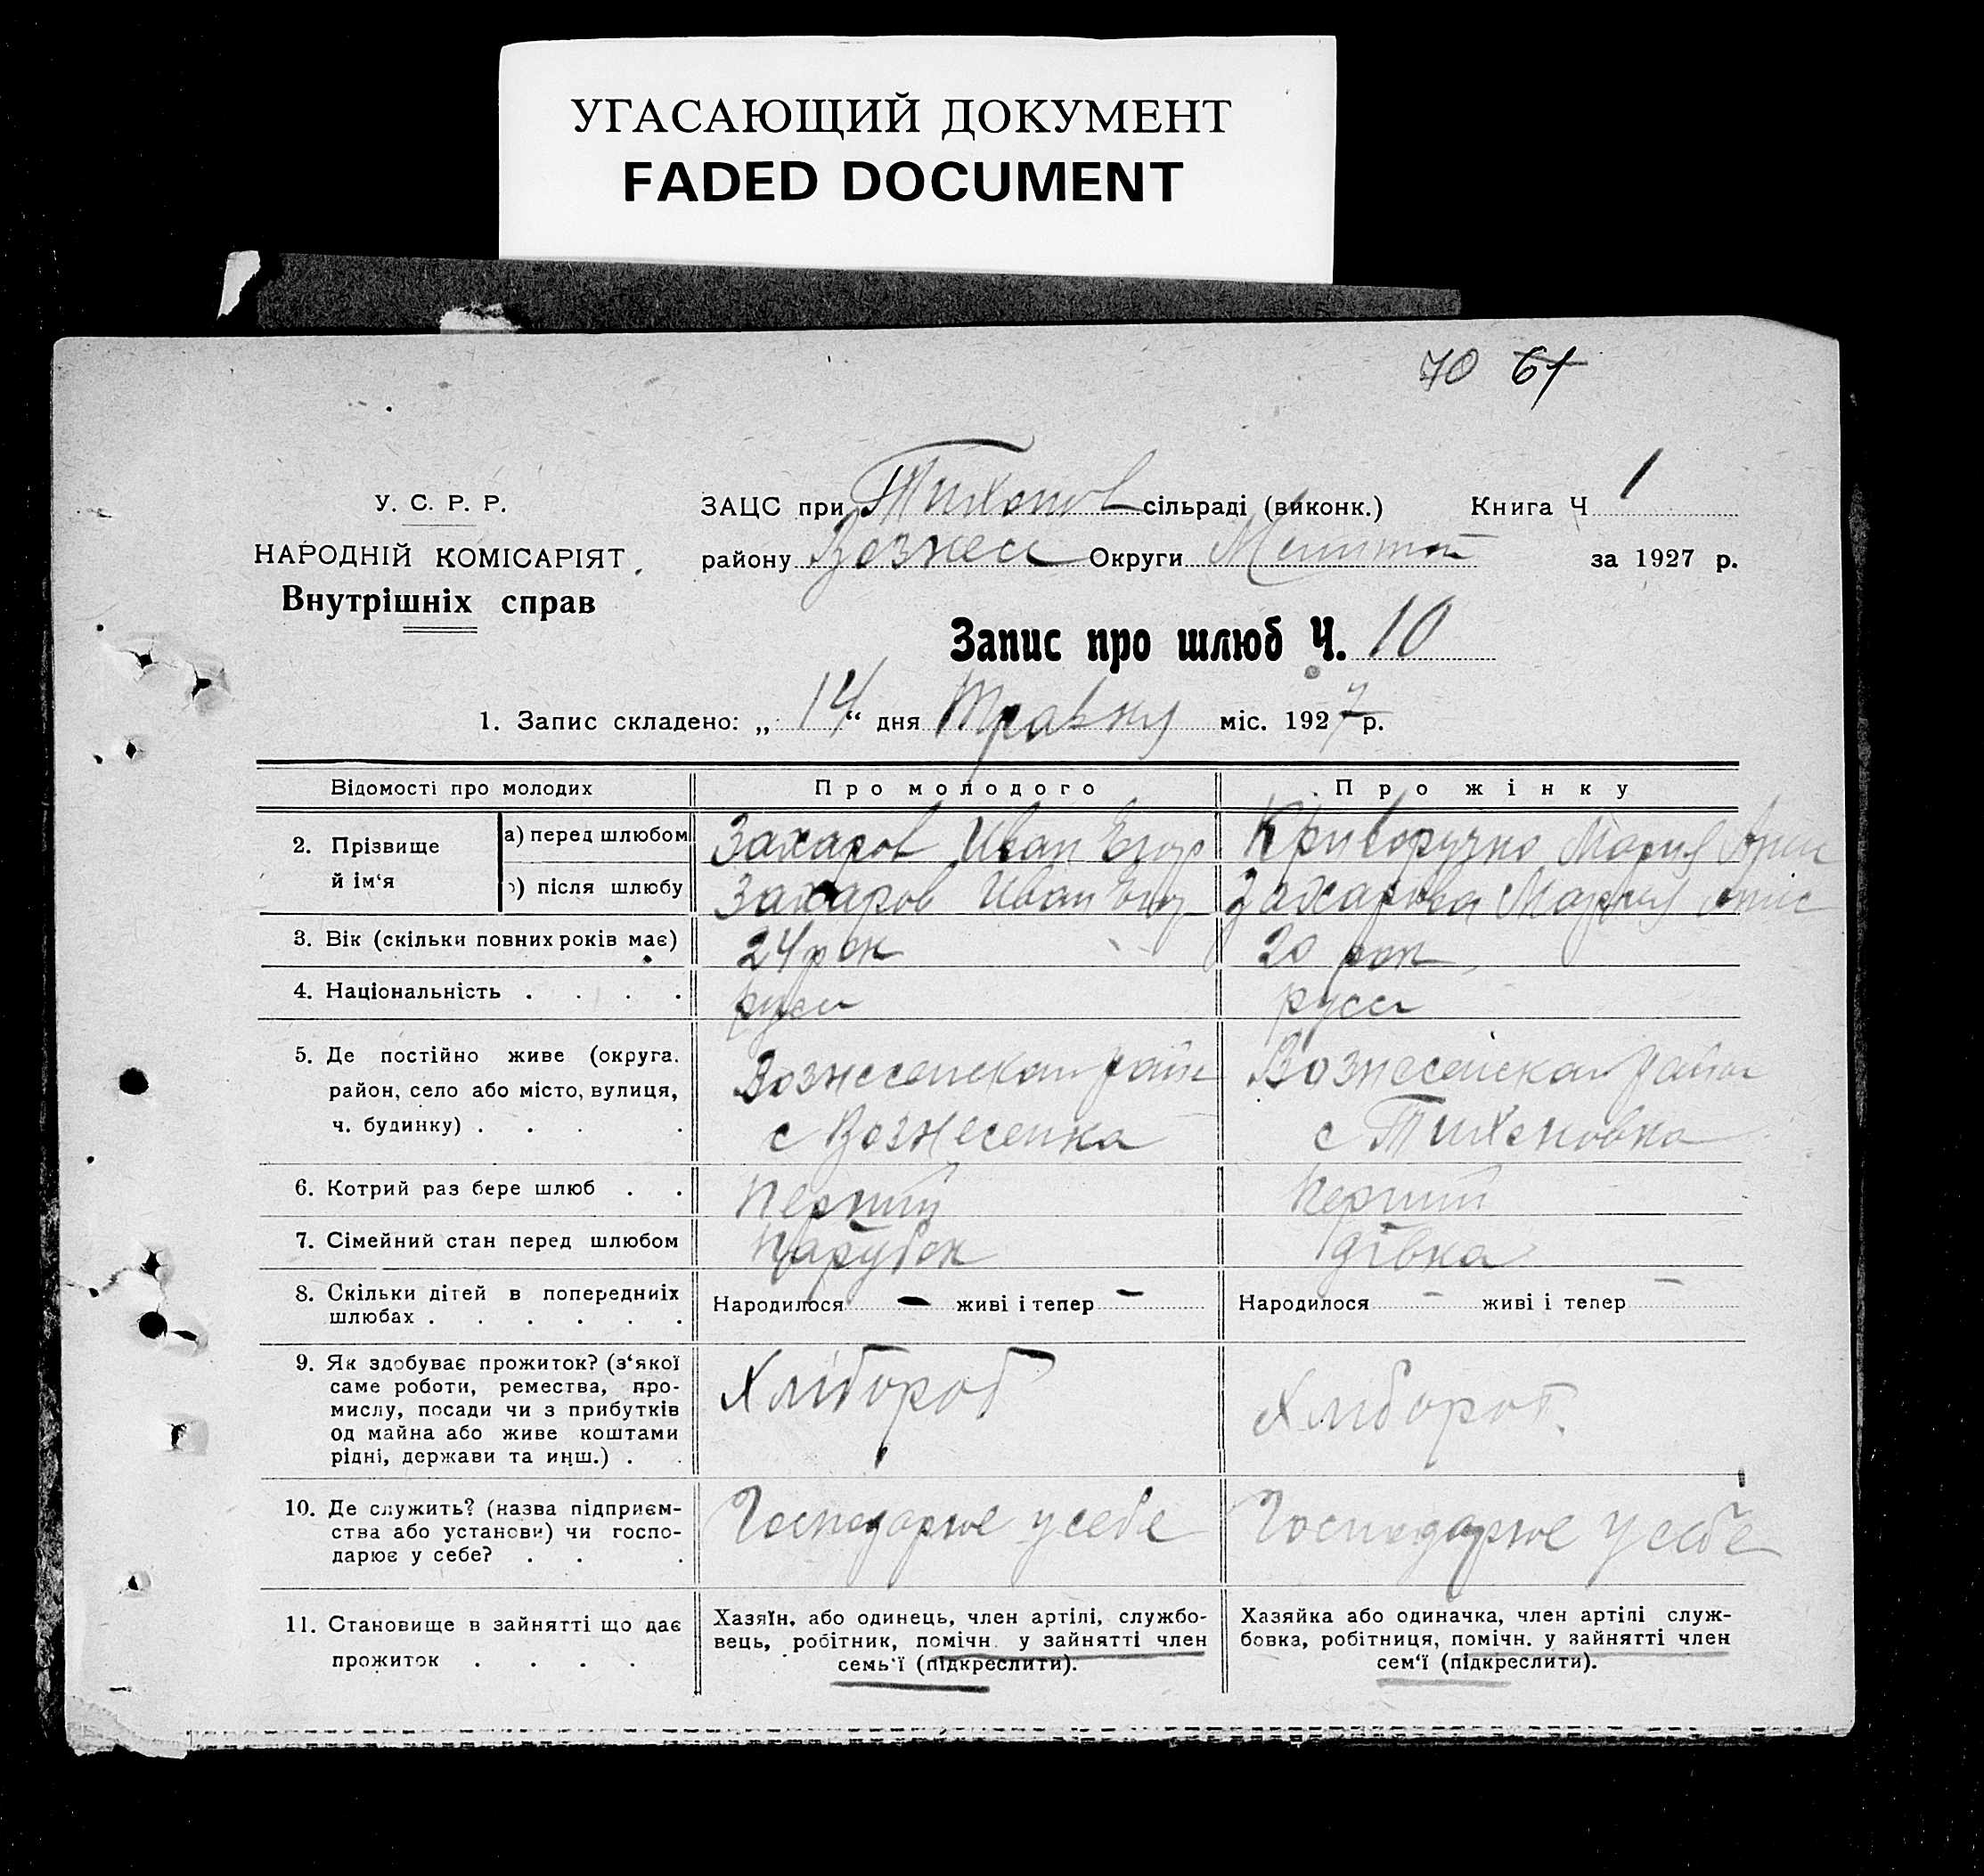 УГАСАЮЩИЙ ДОКУМЕНТ
FADED DOCUMENT
70 61
У. С. Р. Р.
НАРОДНІЙ КОМІСАРІЯТ
Внутрішніх справ
ЗАЦС при Тихонов сільраді (виконк.) Книга Ч 1
району Вознесе Округи за 1927 р.
Запис про шлюб Ч. 10
1. Запис складено: „ 14 “ дня Травня міс. 1927 р.
Відомості про молодих Про молодого Про жінку
2. Прізвище й ім‘я
а) перед шлюбом Захаров Иван Егор Криворучко Мария
) після шлюбу Захаров Иван Егор Захарова Мария
3. Вік (скільки повних років має) 24 рок 20 рок
4. Національність . . . . русск русск
5. Де постійно живе (округа. район, село або місто, вулиця, ч. будинку) . . . .
Вознесенскаи райн
с Вознесенка
Вознесенскаи район
с Тихоновка
6. Котрий раз бере шлюб . . Перший Перший
7. Сімейний стан перед шлюбом Парубок дівка
8. Скільки дітей в попередниіх шлюбах . . . . . .
Народилося — живі і тепер —
Народилося — живі і тепер —
9. Як здобуває прожиток? (з‘якої
саме роботи, ремества, про-
мислу, посади чи з прибутків
од майна або живе коштами
рідні, держави та инш.) . .
Хлібороб Хлібороб.
10. Де служить? (назва підприєм-
ства або установи) чи госпо-
дарює у себе? . . .
Господарює у себе Господарює у себе
11. Становище в зайнятті що дає
прожиток . . . .
Хазяїн, або одинець, член артілі, службо-
вець, робітник, помічн. у зайнятті член
семь‘ї (підкреслити).
Хазяйка або одиначка, член артілі служ-
бовка, робітниця, помічн. у зайнятті член
сем‘ї (підкреслити).